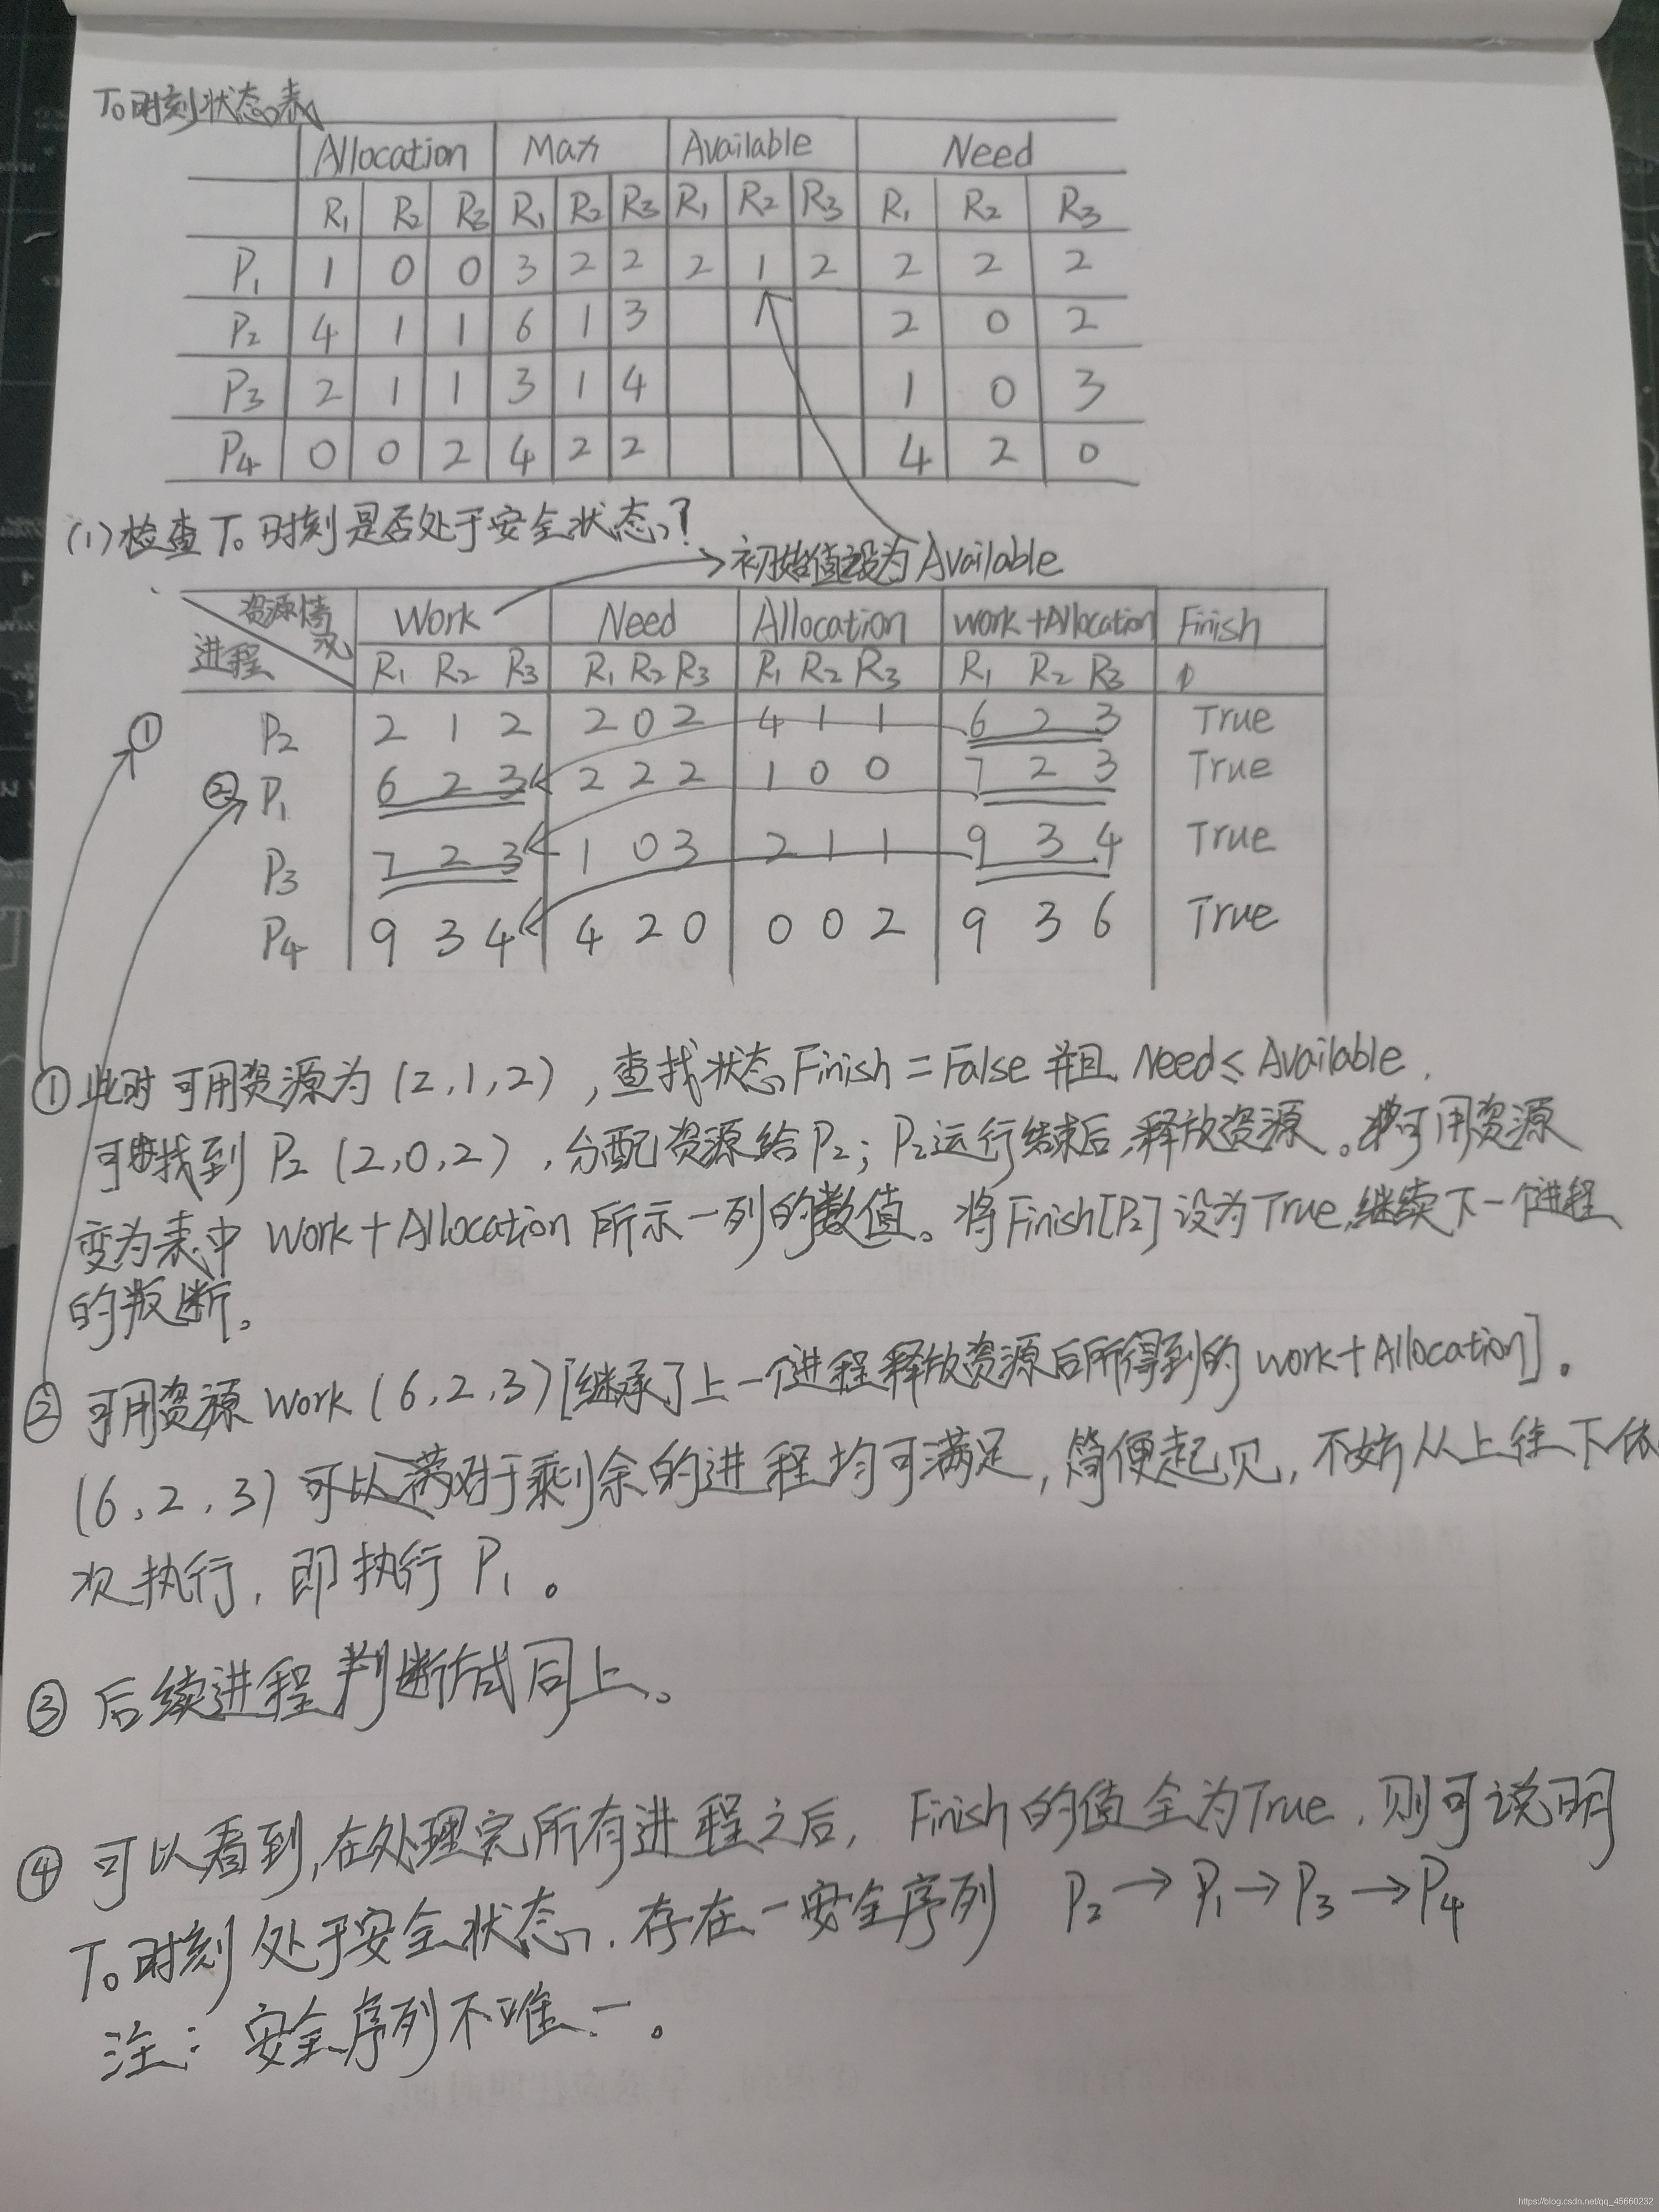 T₀时刻状态表
Allocation Max Available Need
R₁ R₂ R₃ R₁ R₂ R₃ R₁ R₂ R₃ R₁ R₂ R₃
P₁ 1 0 0 3 2 2 2 1 2 2 2 2
P₂ 4 1 1 6 1 3 2 0 2
P₃ 2 1 1 3 1 4 1 0 3
P₄ 0 0 2 4 2 2 4 2 0
(1)检查T₀时刻是否处于安全状态?
初始值设为Available
资源情况 Work Need Allocation work+Allocation Finish
进程 R₁ R₂ R₃ R₁ R₂ R₃ R₁ R₂ R₃ R₁ R₂ R₃
① P₂ 2 1 2 2 0 2 4 1 1 6 2 3 True
② P₁ 6 2 3 2 2 2 1 0 0 7 2 3 True
P₃ 7 2 3 1 0 3 2 1 1 9 3 4 True
P₄ 9 3 4 4 2 0 0 0 2 9 3 6 True
① 此时可用资源为(2,1,2),查找状态Finish=False并且Need≤Available.
可找到P₂(2,0,2),分配资源给P₂;P₂运行结束后,释放资源。可用资源
变为表中Work+Allocation所示一列的数值。将Finish[P₂]设为True,继续下一个进程
的判断。
② 可用资源work(6,2,3)[继承了上一个进程释放资源后所得到的work+Allocation]。
(6,2,3)可以对于剩余的进程均可满足,简便起见,不妨从上往下依
次执行,即执行P₁。
③ 后续进程判断方式同上。
④ 可以看到,在处理完所有进程之后,Finish的值全为True,则可说明
T₀时刻处于安全状态,存在一安全序列 P₂→P₁→P₃→P₄
注:安全序列不唯一。
https://blog.csdn.net/qq_45660232